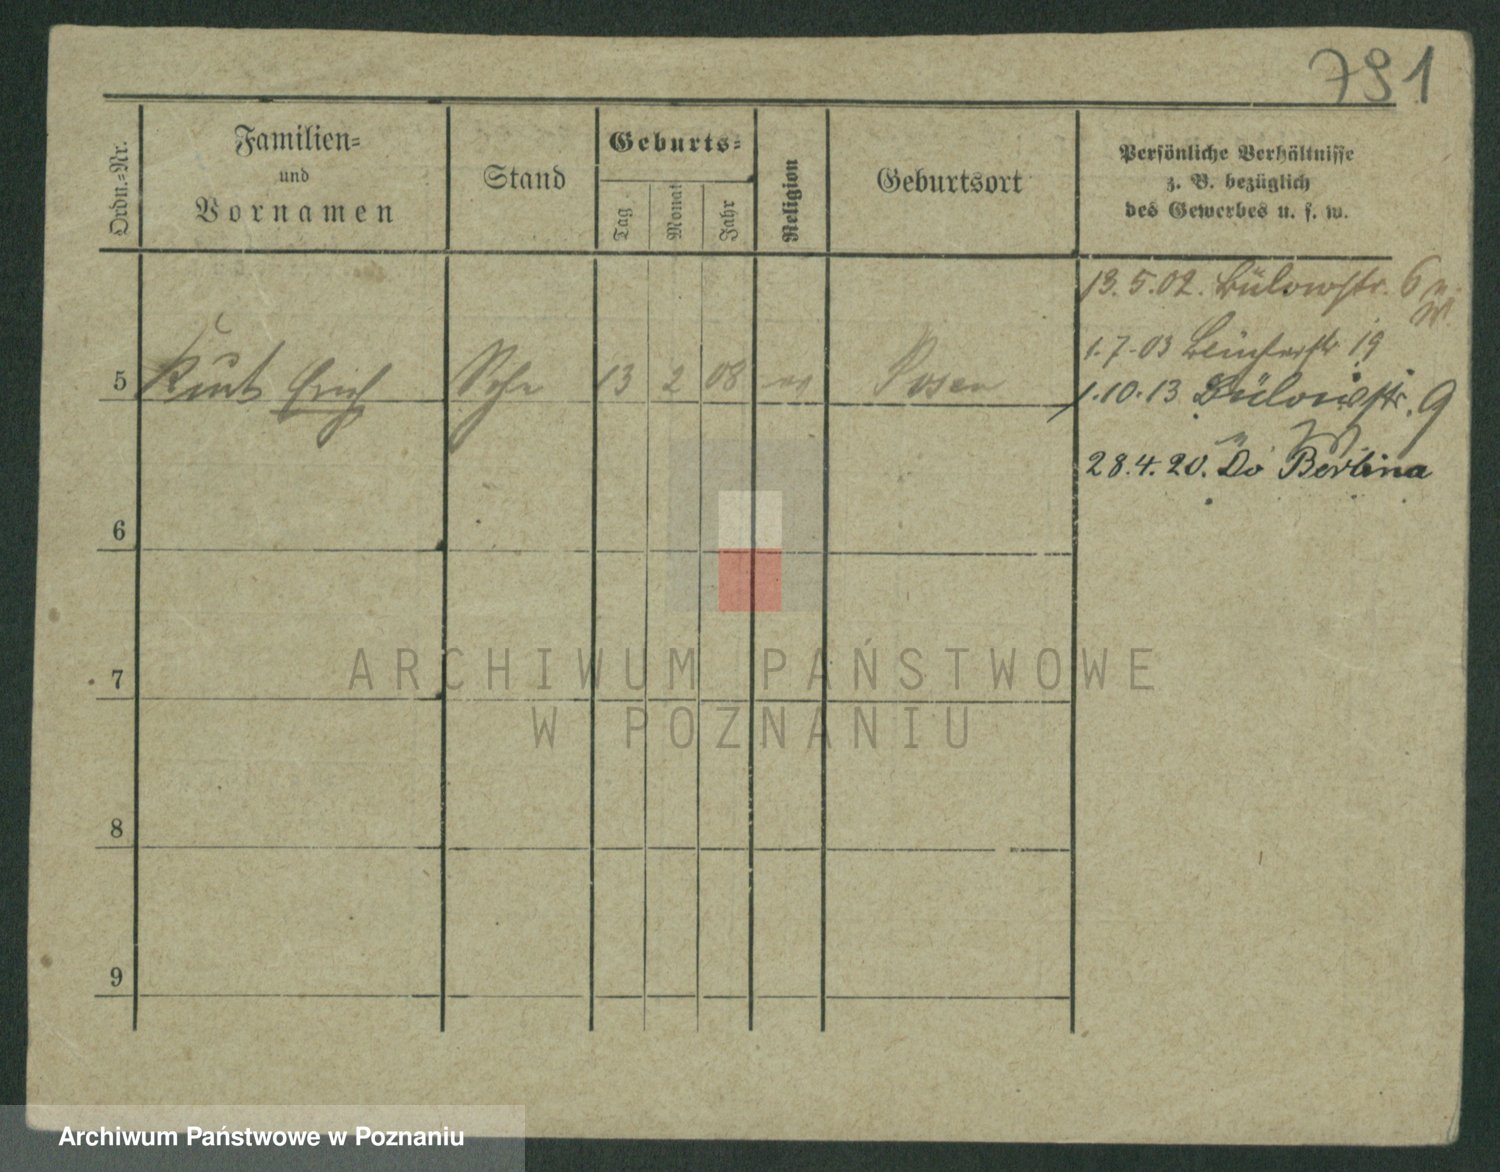 791
Ordn.-Nr.
Familien-
und
Vornamen
Stand
Geburts-
Tag
Monat
Jahr
Religion
Geburtsort
Persönliche Verhältnisse
z. B. bezüglich
des Gewerbes u. s. w.
13.5.02. Bülowstr. 6
1.7.03 19
5 Kurt Erich 13 2 08 Posen
1.10.13 Bülowstr. 9
28.4.20. Do Berlina
6
7
8
9
ARCHIWUM PAŃSTWOWE
W POZNANIU
Archiwum Państwowe w Poznaniu